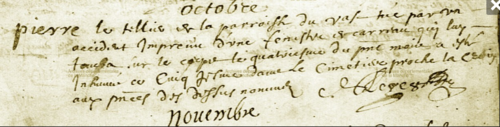 octobre
pierre le tellier de la parroisse du vast tué par un
accident impreveu d'une de carreau qui luy
tomba sur le corps le quatriesme du pnt mois a esté
inhumé ce cinq iesme dans le Cimetiere proche la
aux pnces des dessus nommés
Novembre